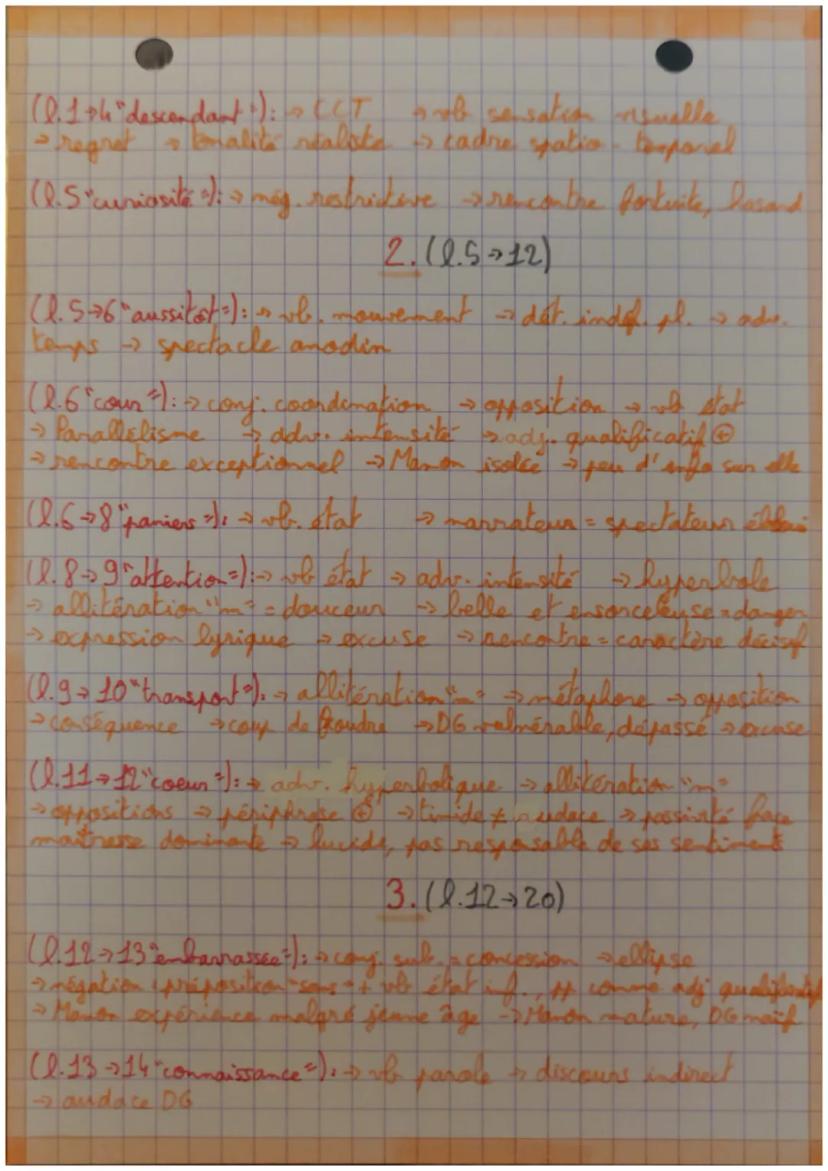 (l.1→4 "descendant"): → CCT → vb sensation visuelle
→ regret → tonalité réaliste → cadre spatio-temporel
(l.5 "curiosité"): → nég. restrictive → rencontre fortuite, hasard
2. (l.5→12)
(l.5→6 "aussitôt"): → vb. mouvement → dét. indéf. pl. → adv.
temps → spectacle anodin
(l.6 "cour"): → conj. coordination → opposition → vb état
→ Parallélisme → adv. intensité → adj. qualificatif ⊕
→ rencontre exceptionnel → Manon isolée → peu d'info sur elle
(l.6→8 "paniers"): → vb. état → narrateur = spectateur ébloui
(l.8→9 "attention"): → vb état → adv. intensité → hyperbole
→ allitération "m" = douceur → belle et ensorceleuse = danger
→ expression lyrique → excuse → rencontre = caractère décisif
(l.9→10 "transport"): → allitération "m" → métaphore → opposition
→ conséquence → coup de foudre → DG vulnérable, dépassé → excuse
(l.11→12 "coeur"): → adv. hyperbolique → allitération "m"
→ oppositions → périphrase ⊕ → timide ≠ audace → passivité face
maîtresse dominante → lucide, pas responsable de ses sentiments
3. (l.12→20)
(l.12→13 "embarrassée"): → conj. sub. = concession → ellipse
→ négation (préposition "sans" + vb état inf., pp comme adj qualificatif
→ Manon expérience malgré jeune âge → Manon mature, DG naïf
(l.13→14 "connaissance"): → vb parole → discours indirect
→ audace DG